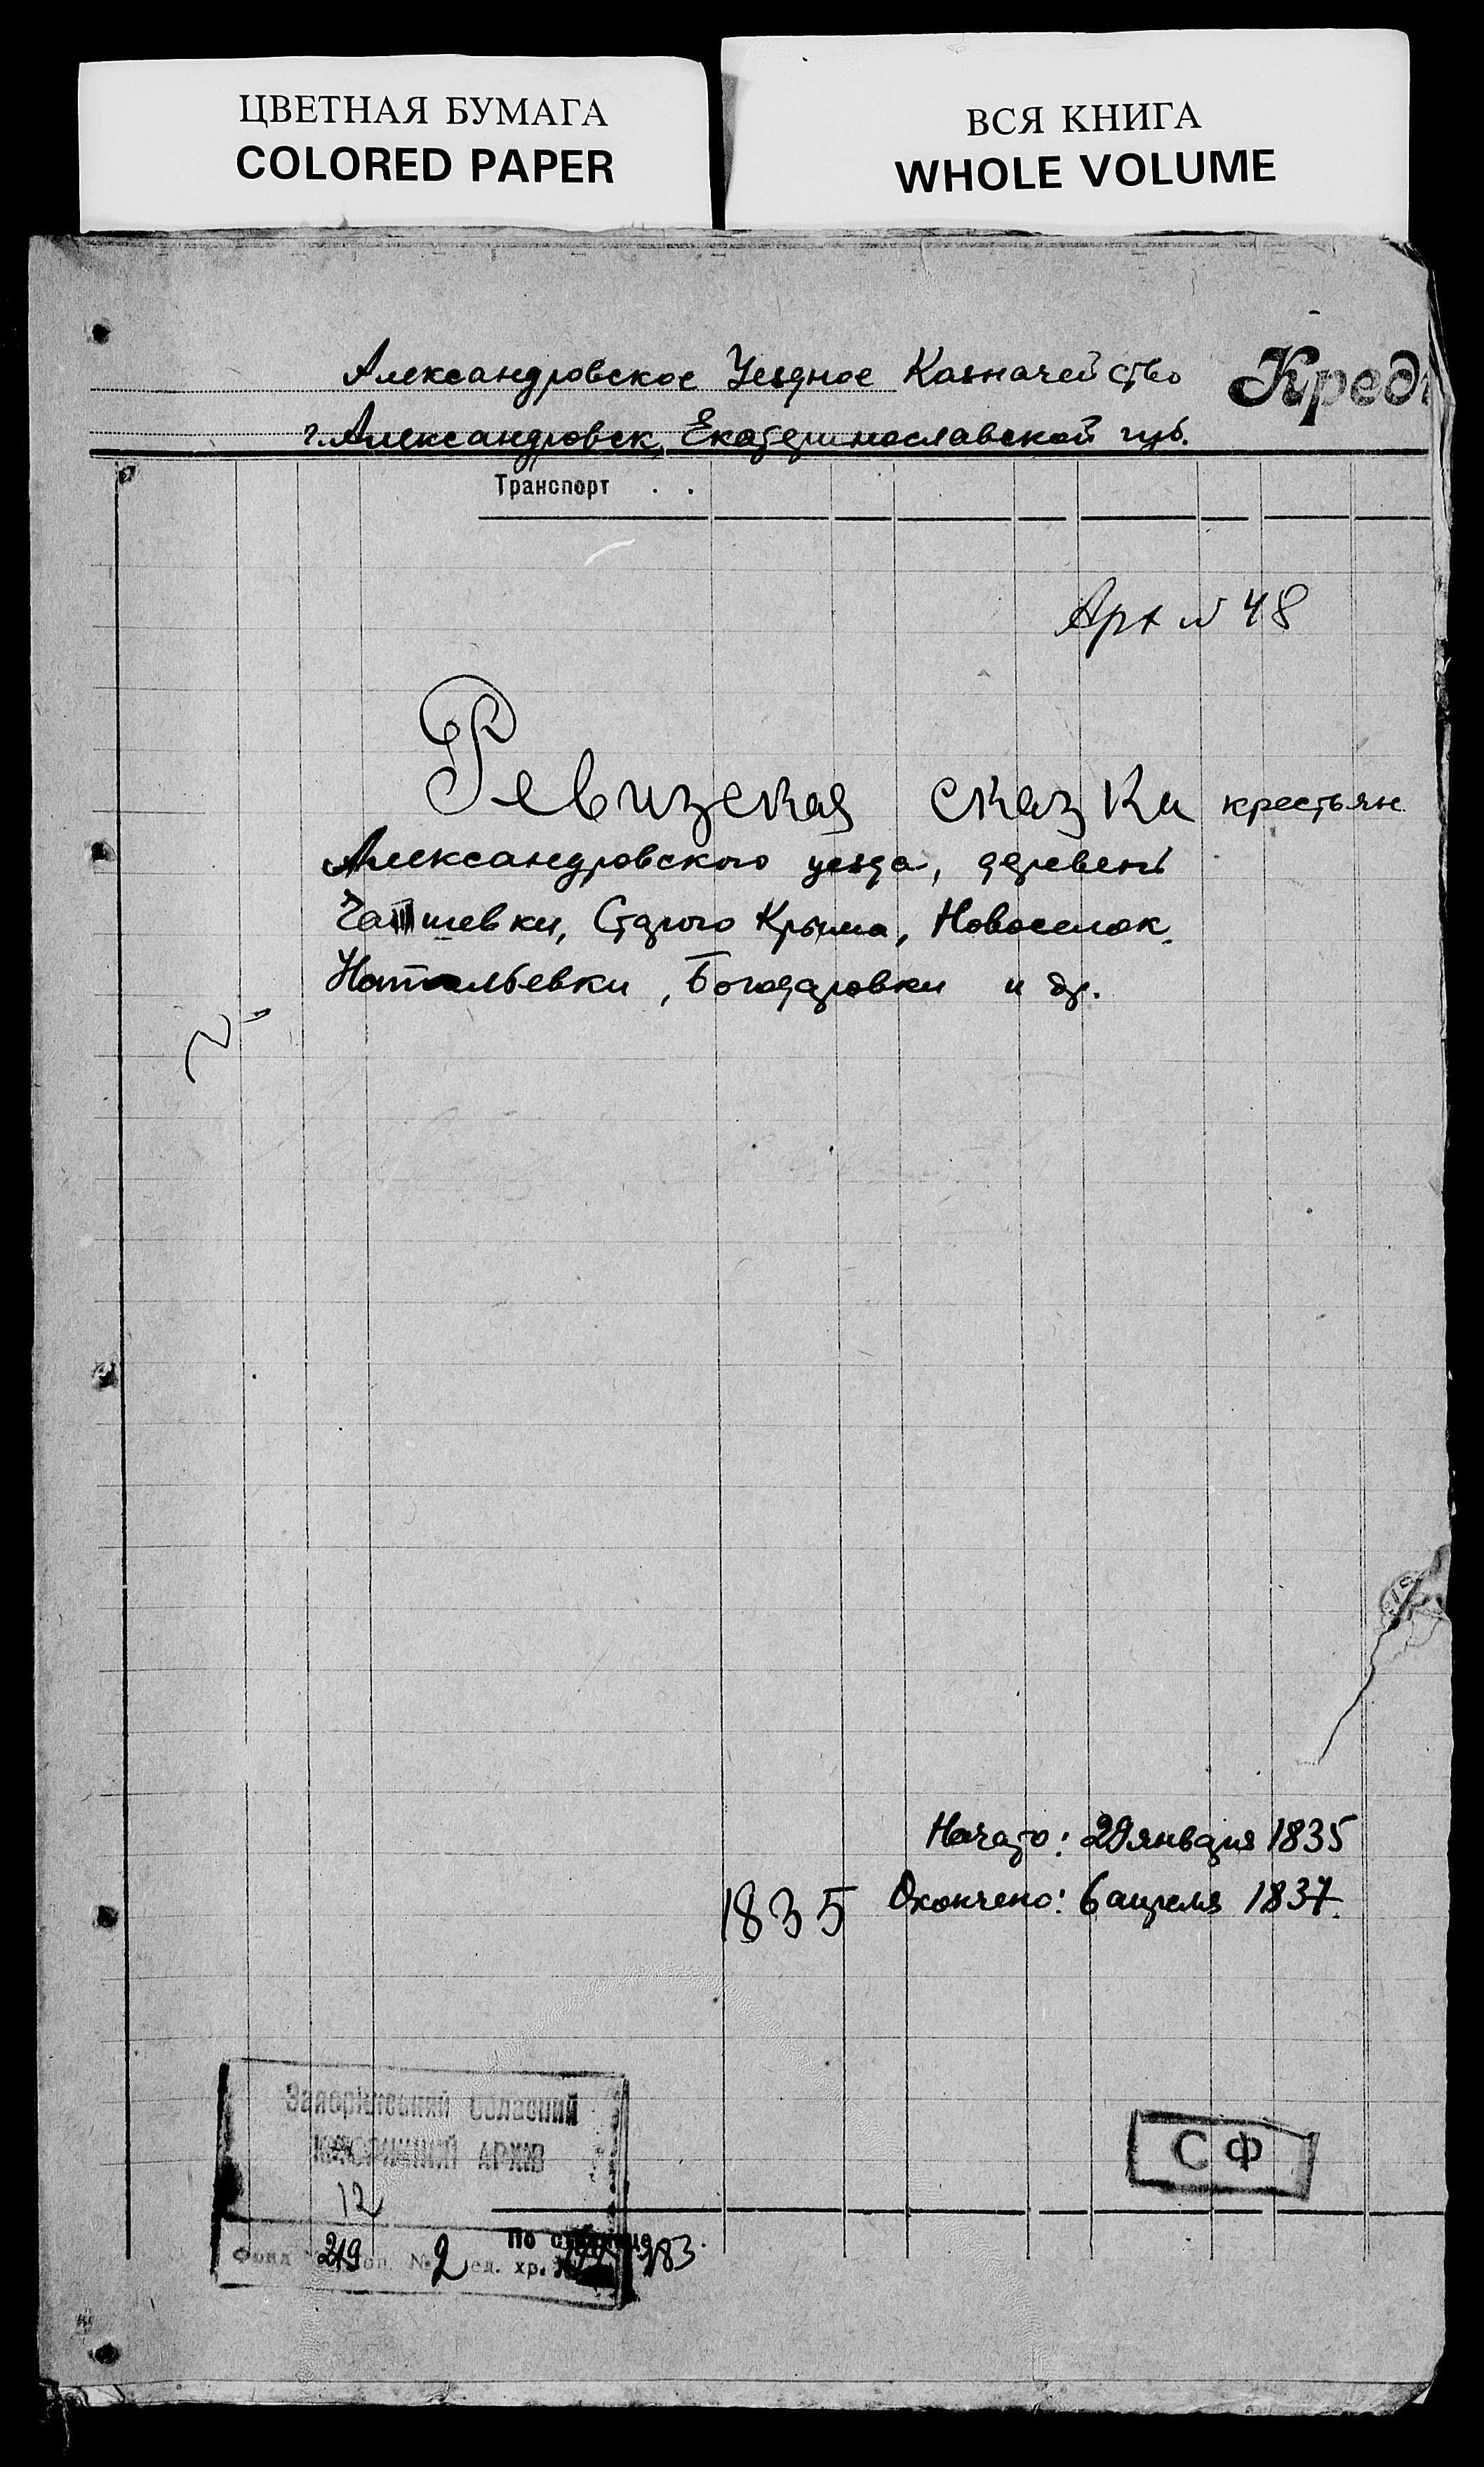 ЦВЕТНАЯ БУМАГА
COLORED PAPER
ВСЯ КНИГА
WHOLE VOLUME
Александровское Уездное Казначейство
Кред
г. Александровск, Екатеринославской губ.
Транспорт . .
Арх № 48
Ревизская сказки крестьян
Александровского уезда, деревень
Старого Крыма, Новоселок,
Натальевки, Богодаровки и др.
Начато: 29 января 1835
1835 Окончено: 6 апреля 1837.
обласний
АРХІВ
12
СФ
По странице
Фонд 219 оп. № 2 ед. хр. 183.